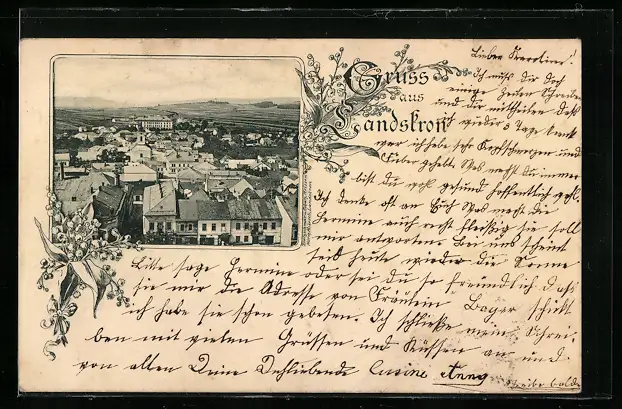 Gruss
aus
Landskron
Liebe Karoline!
Ich muß dir doch
einige Zeilen Schreiben
und dir mittheilen daß
ich wieder 3 Tage krank
war ich habe sehr Kopfschmerzen und
Fieber gehabt. Was machst du immer
bist du gesund hoffentlich
Ich denke oft an Euch Was macht die
Hermine auch recht fleißig sie soll
mir antworten. Bei uns scheint
seit heute wieder die Sonne
Bitte sage Hermine oder sei du so freundlich daß
sie mir die Adresse von Fräulein Bager schickt
ich habe sie schon gebeten. Ich schließe mein Schrei-
ben mit vielen Grüssen und Küssen an und
von allen Deine Dichliebende Cusine Anny
Schreibe bald